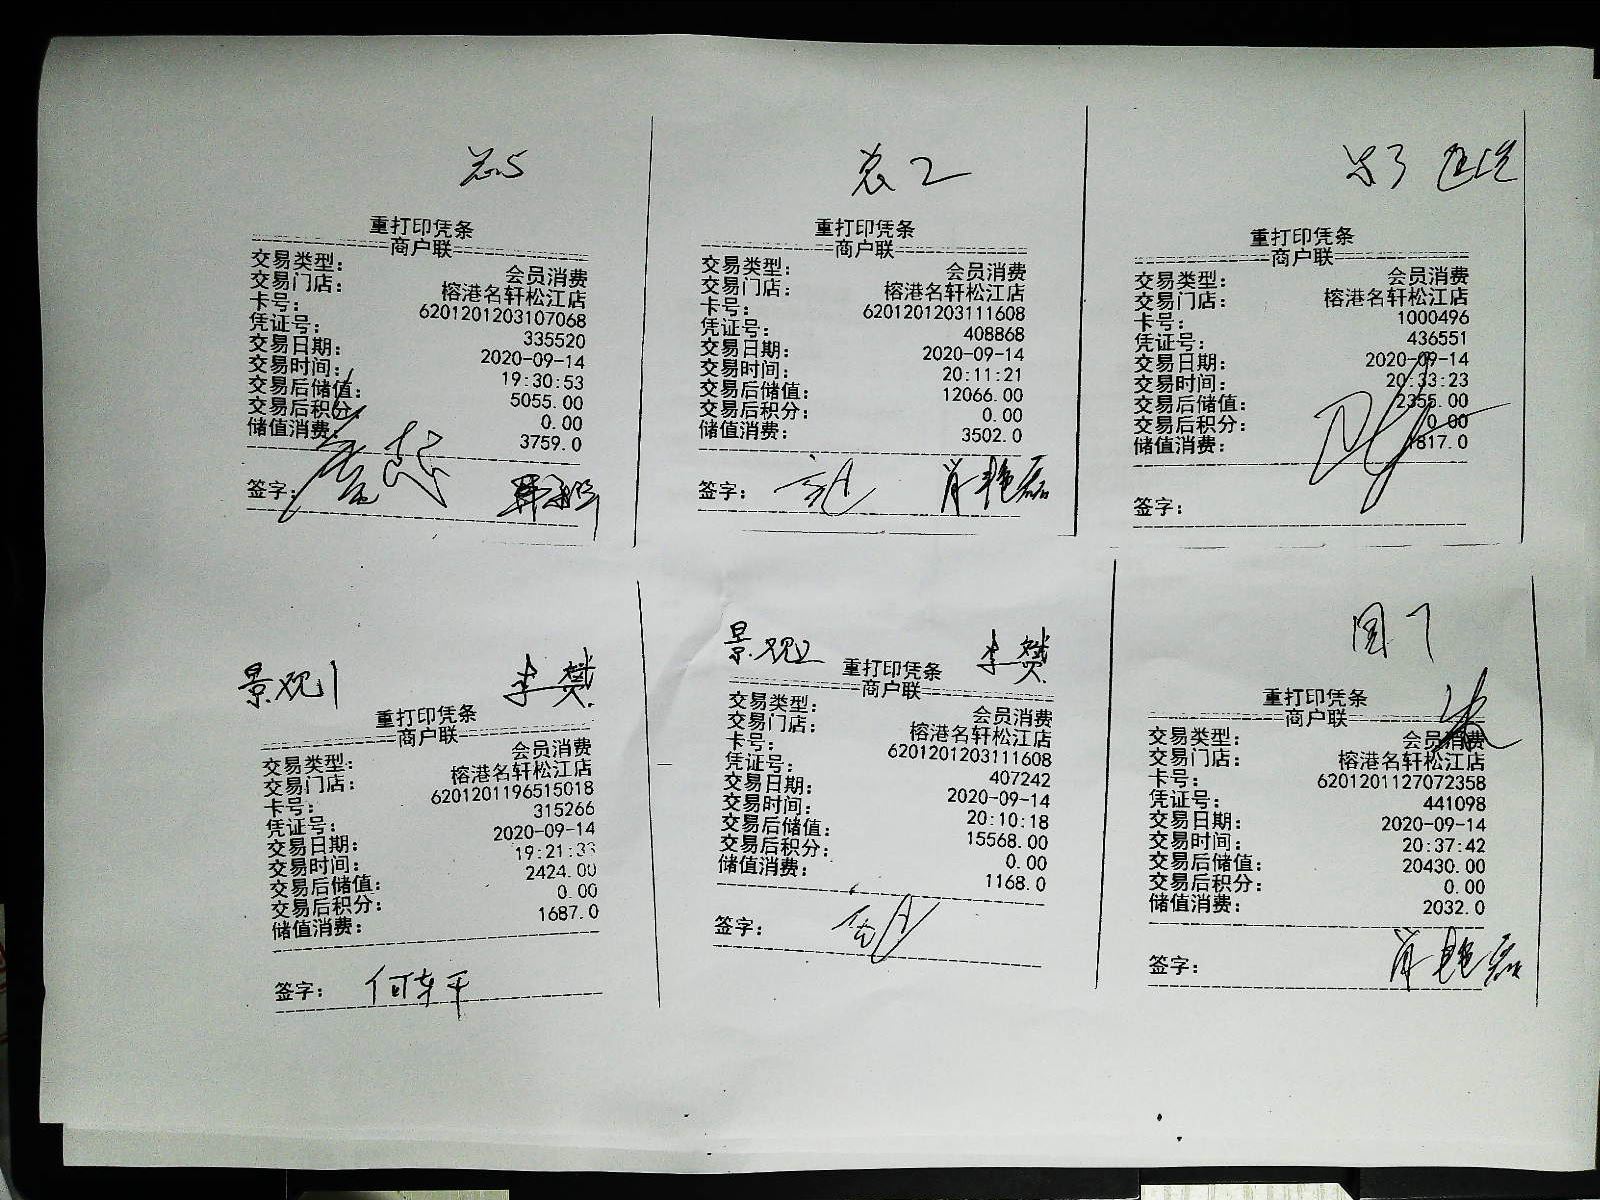 总5
重打印凭条
商户联
交易类型: 会员消费
交易门店: 榕港名轩松江店
卡号: 6201201203107068
凭证号: 335520
交易日期: 2020-09-14
交易时间: 19:30:53
交易后储值: 5055.00
交易后积分: 0.00
储值消费: 3759.0
签字:
总2
重打印凭条
商户联
交易类型: 会员消费
交易门店: 榕港名轩松江店
卡号: 6201201203111608
凭证号: 408868
交易日期: 2020-09-14
交易时间: 20:11:21
交易后储值: 12066.00
交易后积分: 0.00
储值消费: 3502.0
签字: 肖艳磊
总3
重打印凭条
商户联
交易类型: 会员消费
交易门店: 榕港名轩松江店
卡号: 1000496
凭证号: 436551
交易日期: 2020-09-14
交易时间: 20:33:23
交易后储值: 2355.00
交易后积分: 0.00
储值消费: 1817.0
签字:
景观1 李赟
重打印凭条
商户联
交易类型: 会员消费
交易门店: 榕港名轩松江店
卡号: 6201201196515018
凭证号: 315266
交易日期: 2020-09-14
交易时间: 19:21:33
交易后储值: 2424.00
交易后积分: 0.00
储值消费: 1687.0
签字: 何东平
景观2 李赟
重打印凭条
商户联
交易类型: 会员消费
交易门店: 榕港名轩松江店
卡号: 6201201203111608
凭证号: 407242
交易日期: 2020-09-14
交易时间: 20:10:18
交易后储值: 15568.00
交易后积分: 0.00
储值消费: 1168.0
签字:
国7
重打印凭条
商户联
交易类型: 会员消费
交易门店: 榕港名轩松江店
卡号: 6201201127072358
凭证号: 441098
交易日期: 2020-09-14
交易时间: 20:37:42
交易后储值: 20430.00
交易后积分: 0.00
储值消费: 2032.0
签字: 肖艳磊